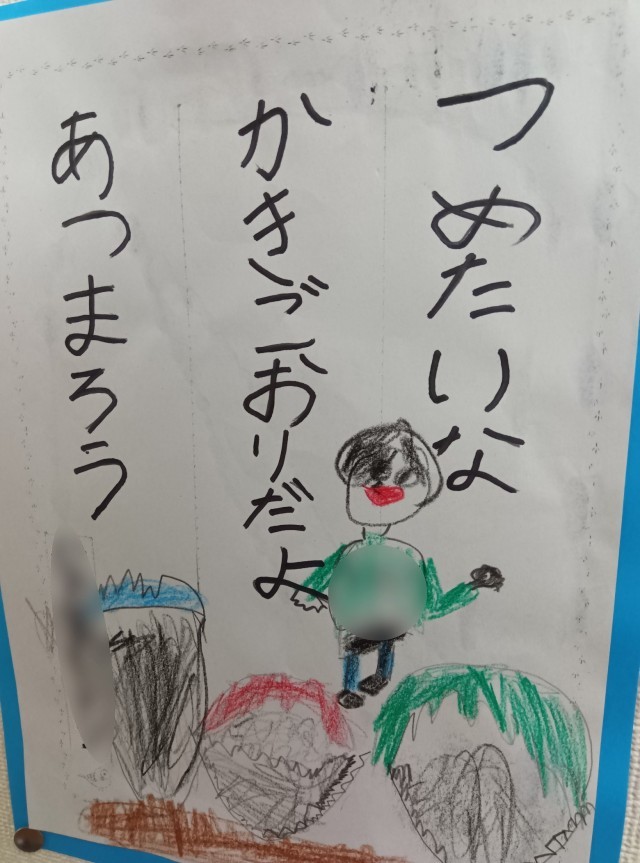 つめたいな
かきごおりだよ
あつまろう